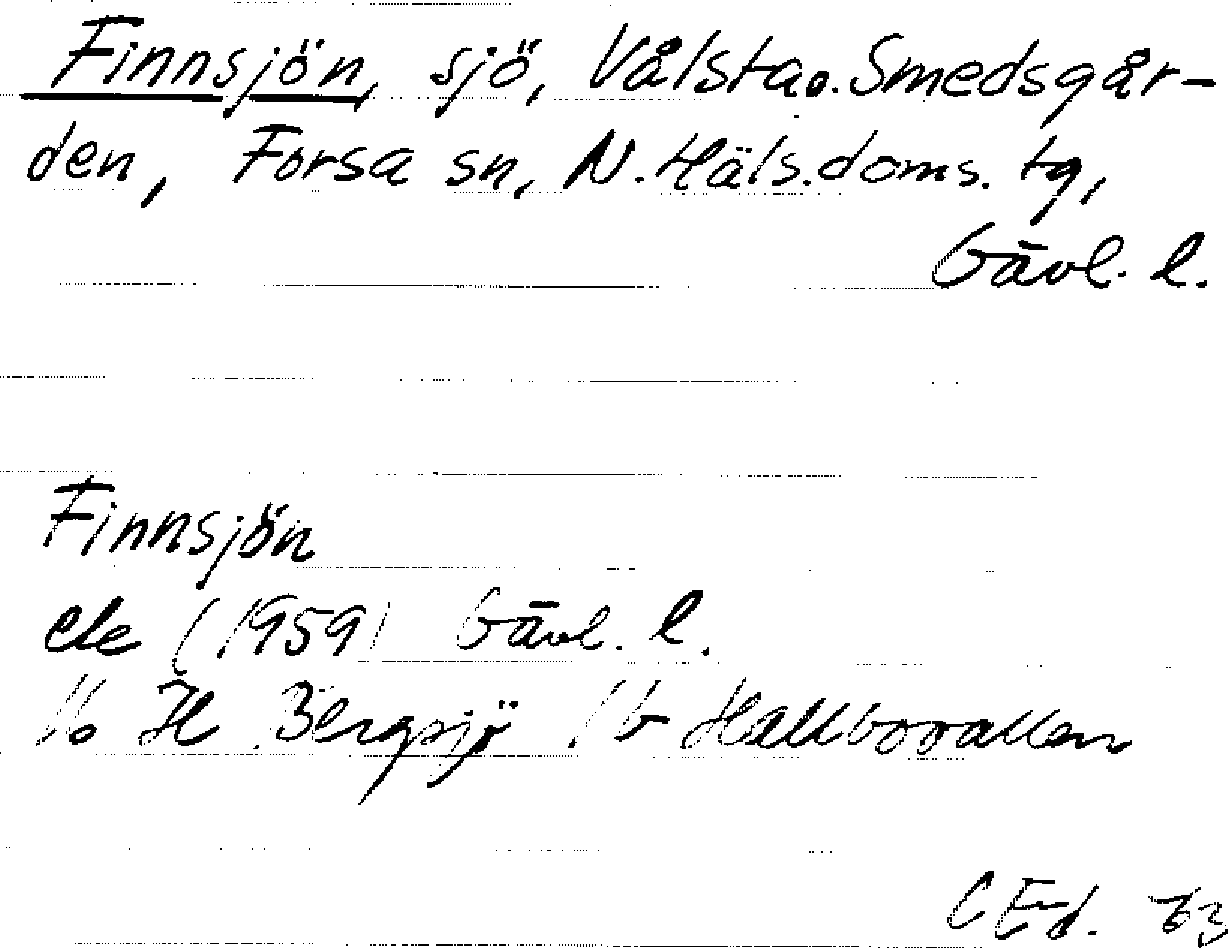 Finnsjön, sjö, Vålsta o. Smedsgår-
den, Forsa sn, N. Häls. doms. tg,
Gävl. l.
Finnsjön
ek (1959) Gävl. l.
16 H Bergsjö 16 Hallbovallen
C Ed. 63